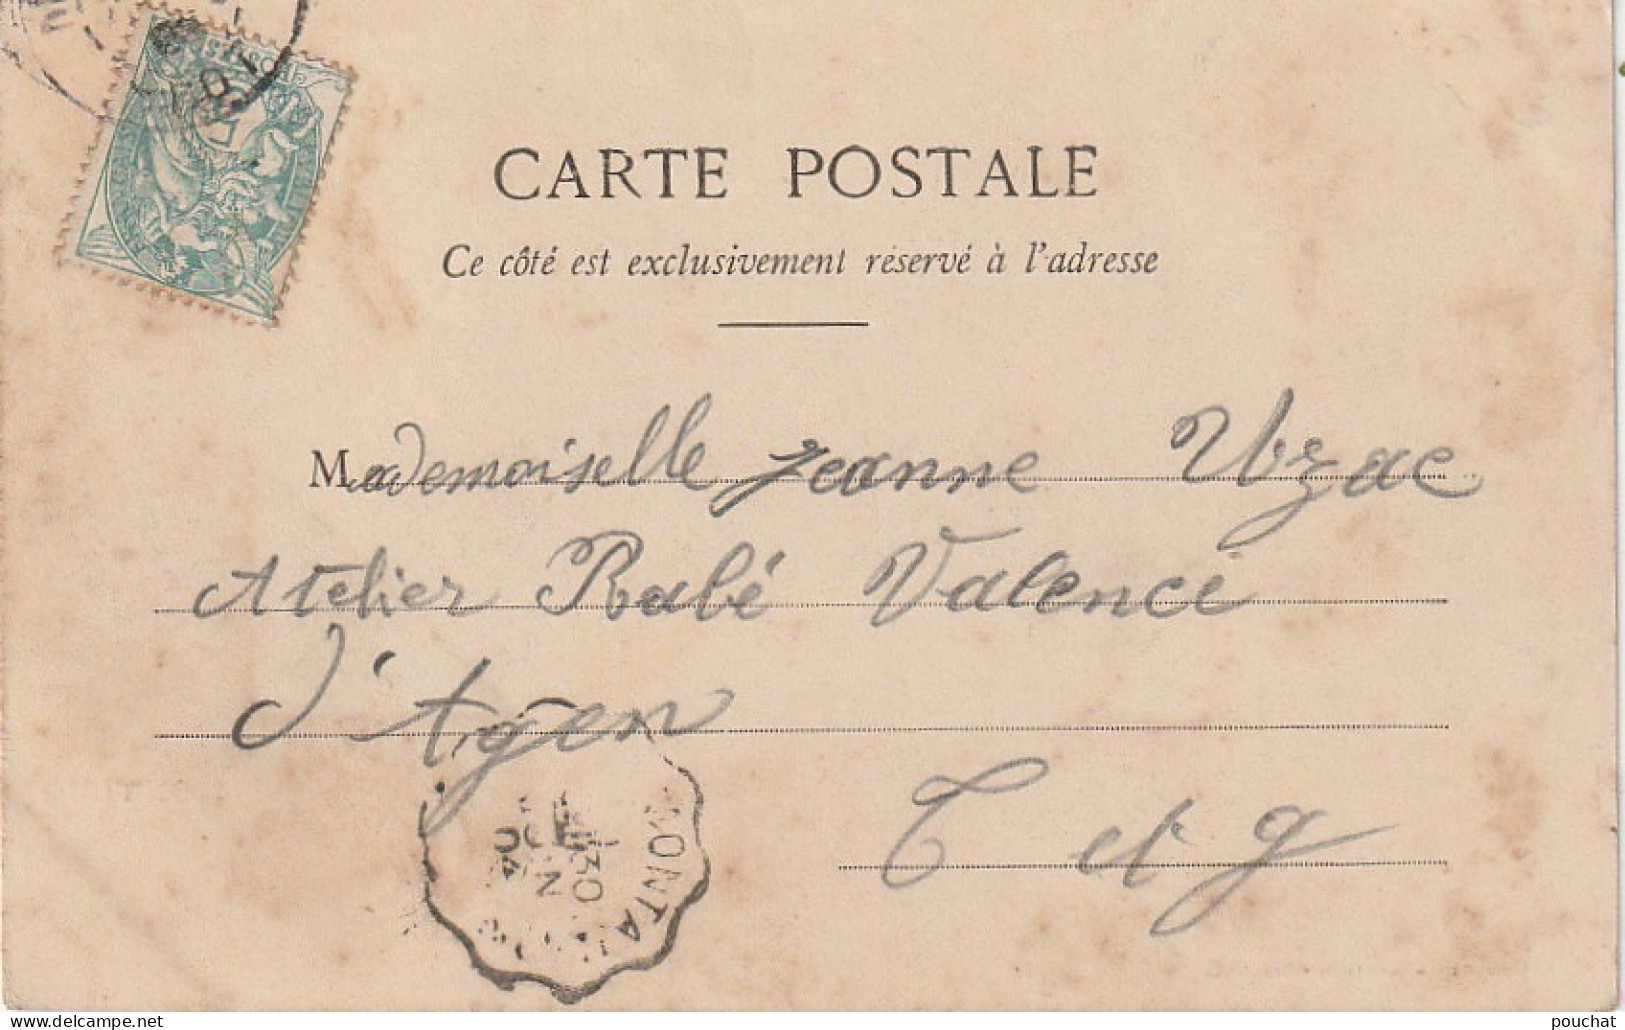 CARTE POSTALE
Ce côté est exclusivement réservé à l'adresse
Mademoiselle Jeanne Uzac
Atelier Rabé Valence
d'Agen
T et g
MONTA
30
delcampe.net
pouchat